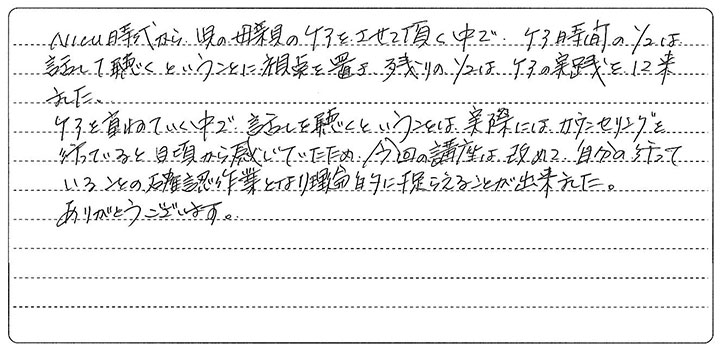 NICU時代から、児の母親のケアをさせて頂く中で、ケア時間の1/2は
話して聴くということに視点を置き、残りの1/2は、ケアの実践をして来
ました。
ケアを重ねていく中で、話しを聴くということは、実際には、カウンセリングを
行っていると日頃から感じていたため、今回の講座は、改めて、自分の行って
いることの確認作業となり理論的に捉らえることが出来ました。
ありがとうございます。